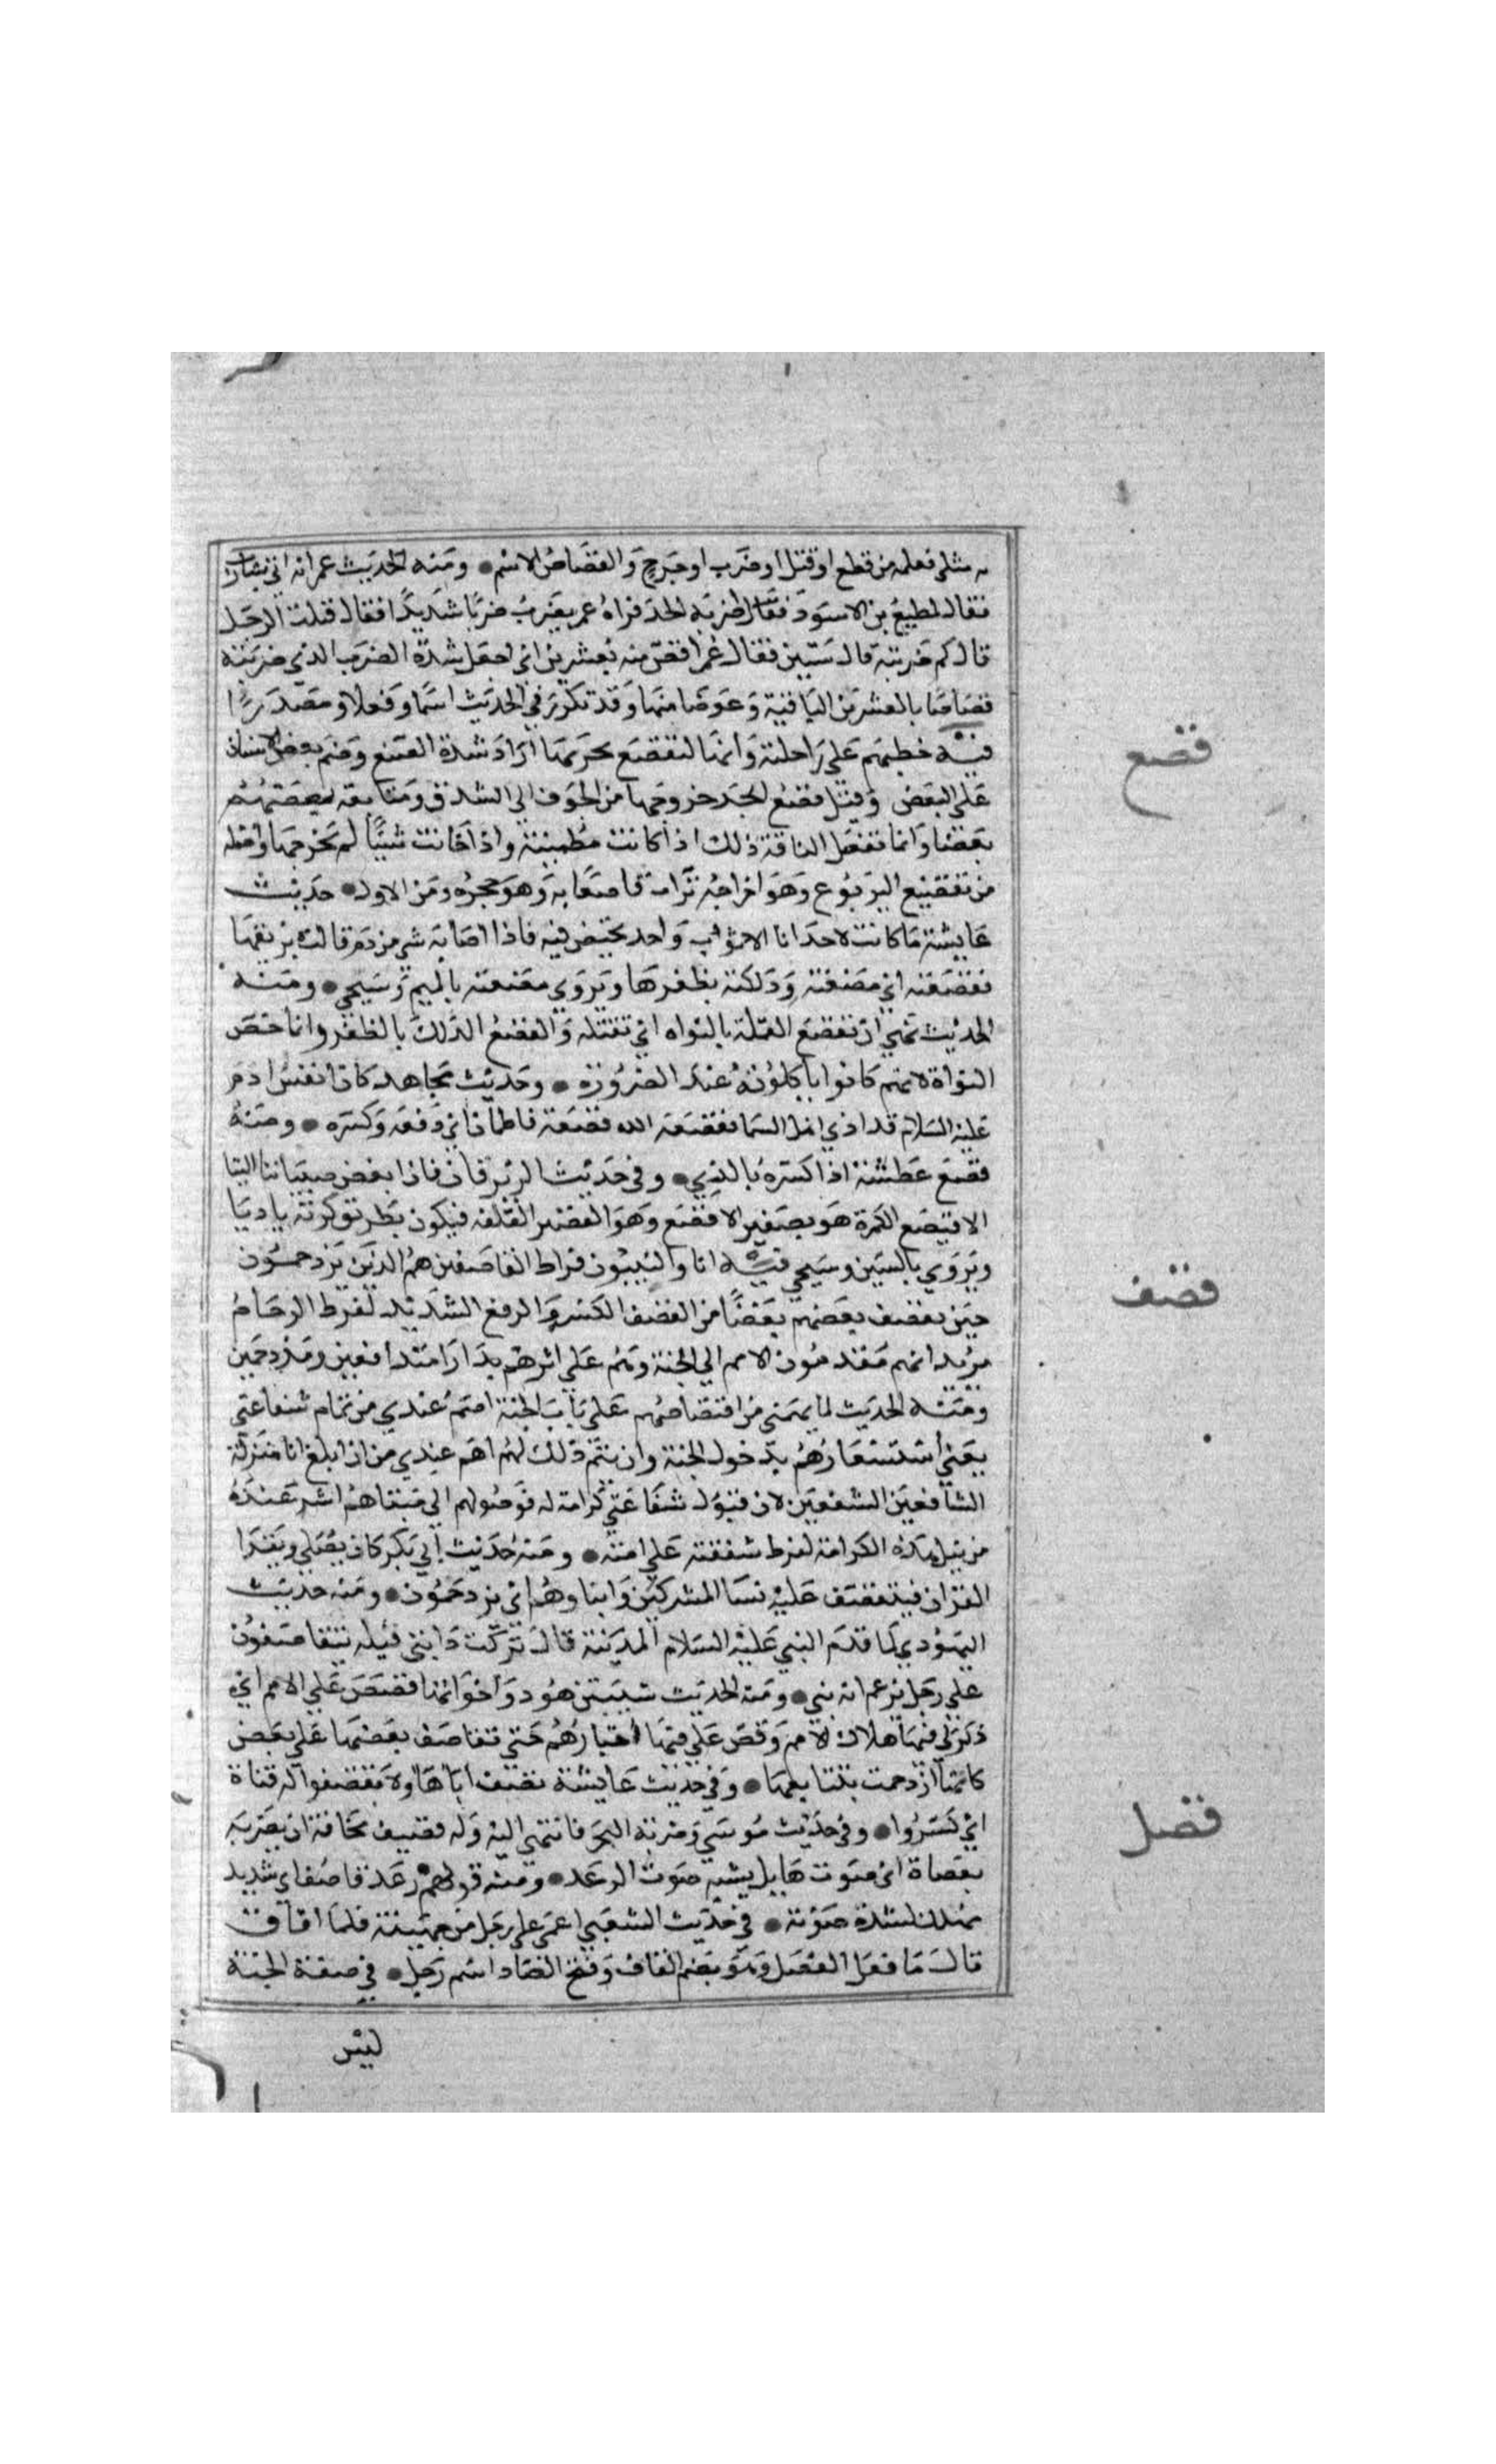 به مثل فعله من قطع او قتل او ضرب او جرح والقصاص الاسم ومنه الحديث عمر انه اتي بشارب
فقال لمطيع بن الاسود فقال اضربه الحد فراه عمر يضربه ضربا شديدا فقال قتلت الرجل
قال كم ضربته قال ستين فقال عمر اقص منه بعشرين اي اجعل شدة الضرب الذي ضربته
قصاصا بالعشرين الباقية وعوضا منها وقد تكرر في الحديث اسما وفعلا ومصدرا
قصع
فيه خطبهم على راحلته وانها لتقصع بجرتها اراد شدة المضغ وضم بعض الاسنان
على البعض وقيل قصع الجرة خروجها من الجوف الى الشدق ومتابعة بعضها
بعضا وانما تفعل الناقة ذلك اذا كانت مطمئنة واذا خافت شيئا لم تخرجها واصله
من تقصيع اليربوع وهو اخراجه تراب قاصعايه وهو جحره ومن الاول حديث
عايشة ما كانت لاحدانا الا ثوب واحد تحيض فيه فاذا اصابه شي من دم قالت بريقها
فقصعته اي مضغته ودلكته بظفرها ويروي مصعته بالميم وسيجي ومنه
الحديث نهي ان تقصع القملة بالنواه اي تقتله والقصع الدلك بالظفر وانما خص
النواة لانهم كانوا ياكلونه عند الضرورة وحديث مجاهد كان نفس ادم
عليه السلام قد اذي اهل السما فقصعه الله قصعة فاطمان اي دفعه وكسره ومنه
قصع عطشه اذا كسره بالري وفي حديث الزبرقان فاذا ابغض صبياننا الينا
الاقيصع الكمرة هو تصغير الاقصع وهو القصير القلفة فيكون بطرف كمرته باديا
ويروي بالسين وسيجي
قصف
فيه انا والنبيون فراط القاصفين هم الذين يزدحمون
حين يقصف بعضهم بعضا من القصف الكسر والدفع الشديد لفرط الزحام
يريد انهم متقدمون الامم الى الجنة وهم على اثرهم بدارا متدافعين ومزدحمين
ومنه الحديث لما يهمني من انقصافهم على باب الجنة اهم عندي من تمام شفاعتي
يعني استسعادهم بدخول الجنة وان يتم ذلك لهم اهم عندي من ان ابلغ انا منزلة
الشافعين المشفعين لان قبول شفاعتي كرامة له فوصولهم الى مبتغاهم اثر عنده
من نيل هذه الكرامة لفرط شفقته على امته ومنه حديث ابي بكر كان يصلي ويقرا
القران فيتقصف عليه نسا المشركين وابناوهم اي يزدحمون ومنه حديث
اليهودي لما قدم النبي عليه السلام المدينة قال تركت ابني قيلة يتقاصفون
على رجل يزعم انه نبي ومنه الحديث شيبتني هود واخواتها قصصن علي الامم اي
ذكر لي فيها هلاك الامم وقص علي فيها اخبارهم حتى تقاصف بعضها على بعض
كانها ازدحمت بتتابعها وفي حديث عايشة تصف اباها ولا قصفوا له قناة
اي كسروا وفي حديث موسى وضربه البحر فانتهى اليه وله قصيف مخافة ان يضربه
بعصاه اي صوت هايل يشبه صوت الرعد ومنه قولهم رعد قاصف اي شديد
مهلك لشدة صوته
قصل
في حديث الشعبي اغمي على رجل من جهينة فلما افاق
قال ما فعل القصل وهو بضم القاف وفتح الصاد اسم رجل في صفة الجنة
ليس